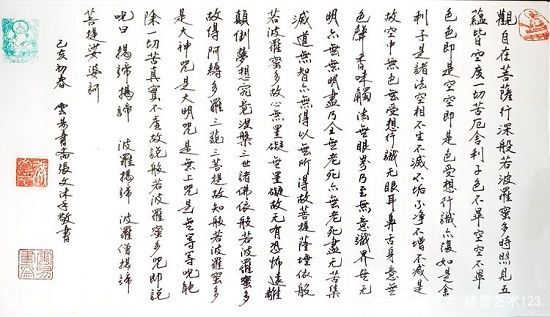 觀自在菩薩行深般若波羅蜜多時照見五
蘊皆空度一切苦厄舍利子色不異空空不異
色色即是空空即是色受想行識亦復如是舍
利子是諸法空相不生不滅不垢不淨不增不減是
故空中無色無受想行識无眼耳鼻舌身意無
色聲香味觸法無眼界乃至無意識界無无
明亦無無明盡乃至無老死亦無老死盡无苦集
滅道無智亦無得以無所得故菩提薩埵依般
若波羅蜜多故心無罣礙無罣礙故无有恐怖遠離
顛倒夢想究竟涅槃三世諸佛依般若波羅蜜多
故得阿耨多羅三藐三菩提故知般若波羅蜜多
是大神咒是大明咒是無上咒是無等等咒能
除一切苦真實不虛故說般若波羅蜜多咒即說
咒曰 揭諦揭諦 波羅揭諦 波羅僧揭諦
菩提娑婆訶
己亥初春 雲 書齋張文沐手敬書
墨艺术123